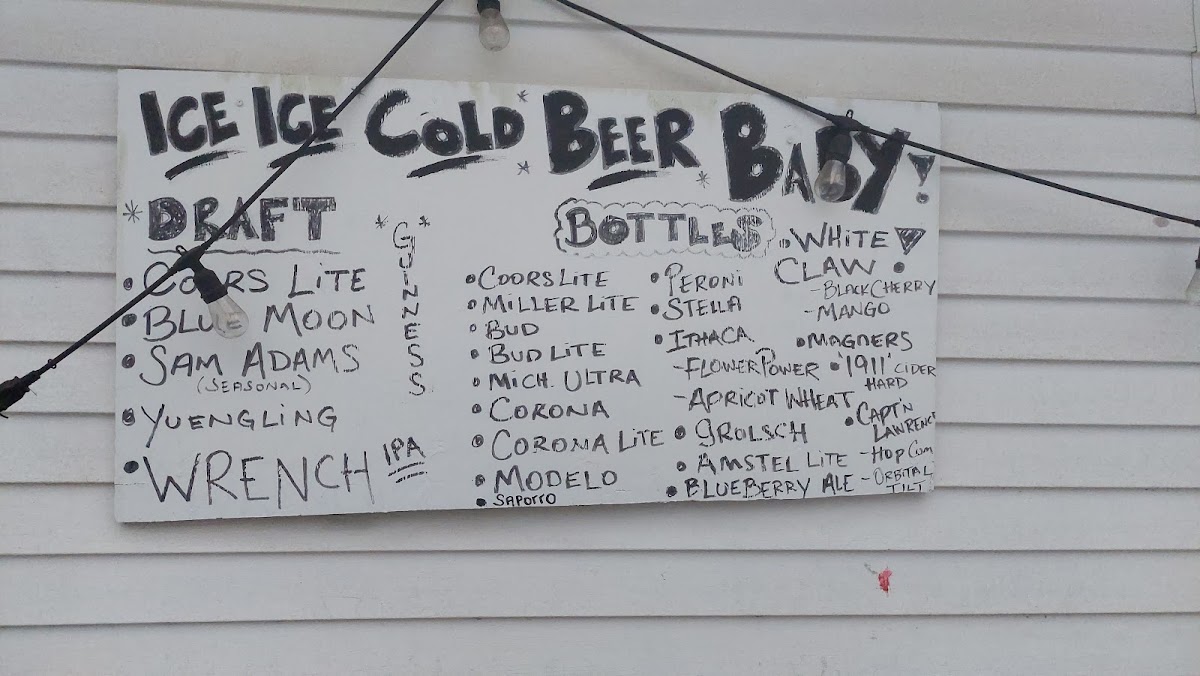 ICE ICE COLD BEER BABY!
DRAFT
COORS LITE
BLUE MOON
SAM ADAMS
(SEASONAL)
YUENGLING
WRENCH IPA
GUINNESS
BOTTLE$
COORS LITE
MILLER LITE
BUD
BUD LITE
MICH. ULTRA
CORONA
CORONA LITE
MODELO
SAPORRO
PERONI
STELLA
ITHACA
-FLOWER POWER
-APRICOT WHEAT
GROLSCH
AMSTEL LITE
BLUEBERRY ALE
WHITE
CLAW
-BLACK CHERRY
-MANGO
MAGNERS
'1911' CIDER
HARD
CAPT'N
LAWRENCE
-HOP COM
-ORBITAL
TILT